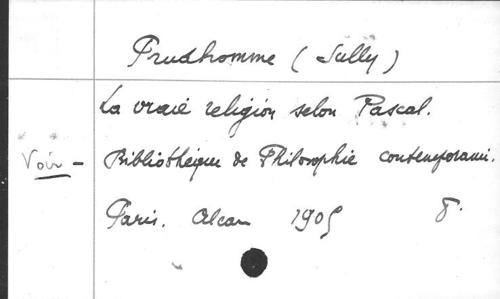 Prudhomme (Sully)
La vraie religion selon Pascal.
Voir – Bibliothèque de Philosophie contemporaine.
Paris. Alcan 1905 8.